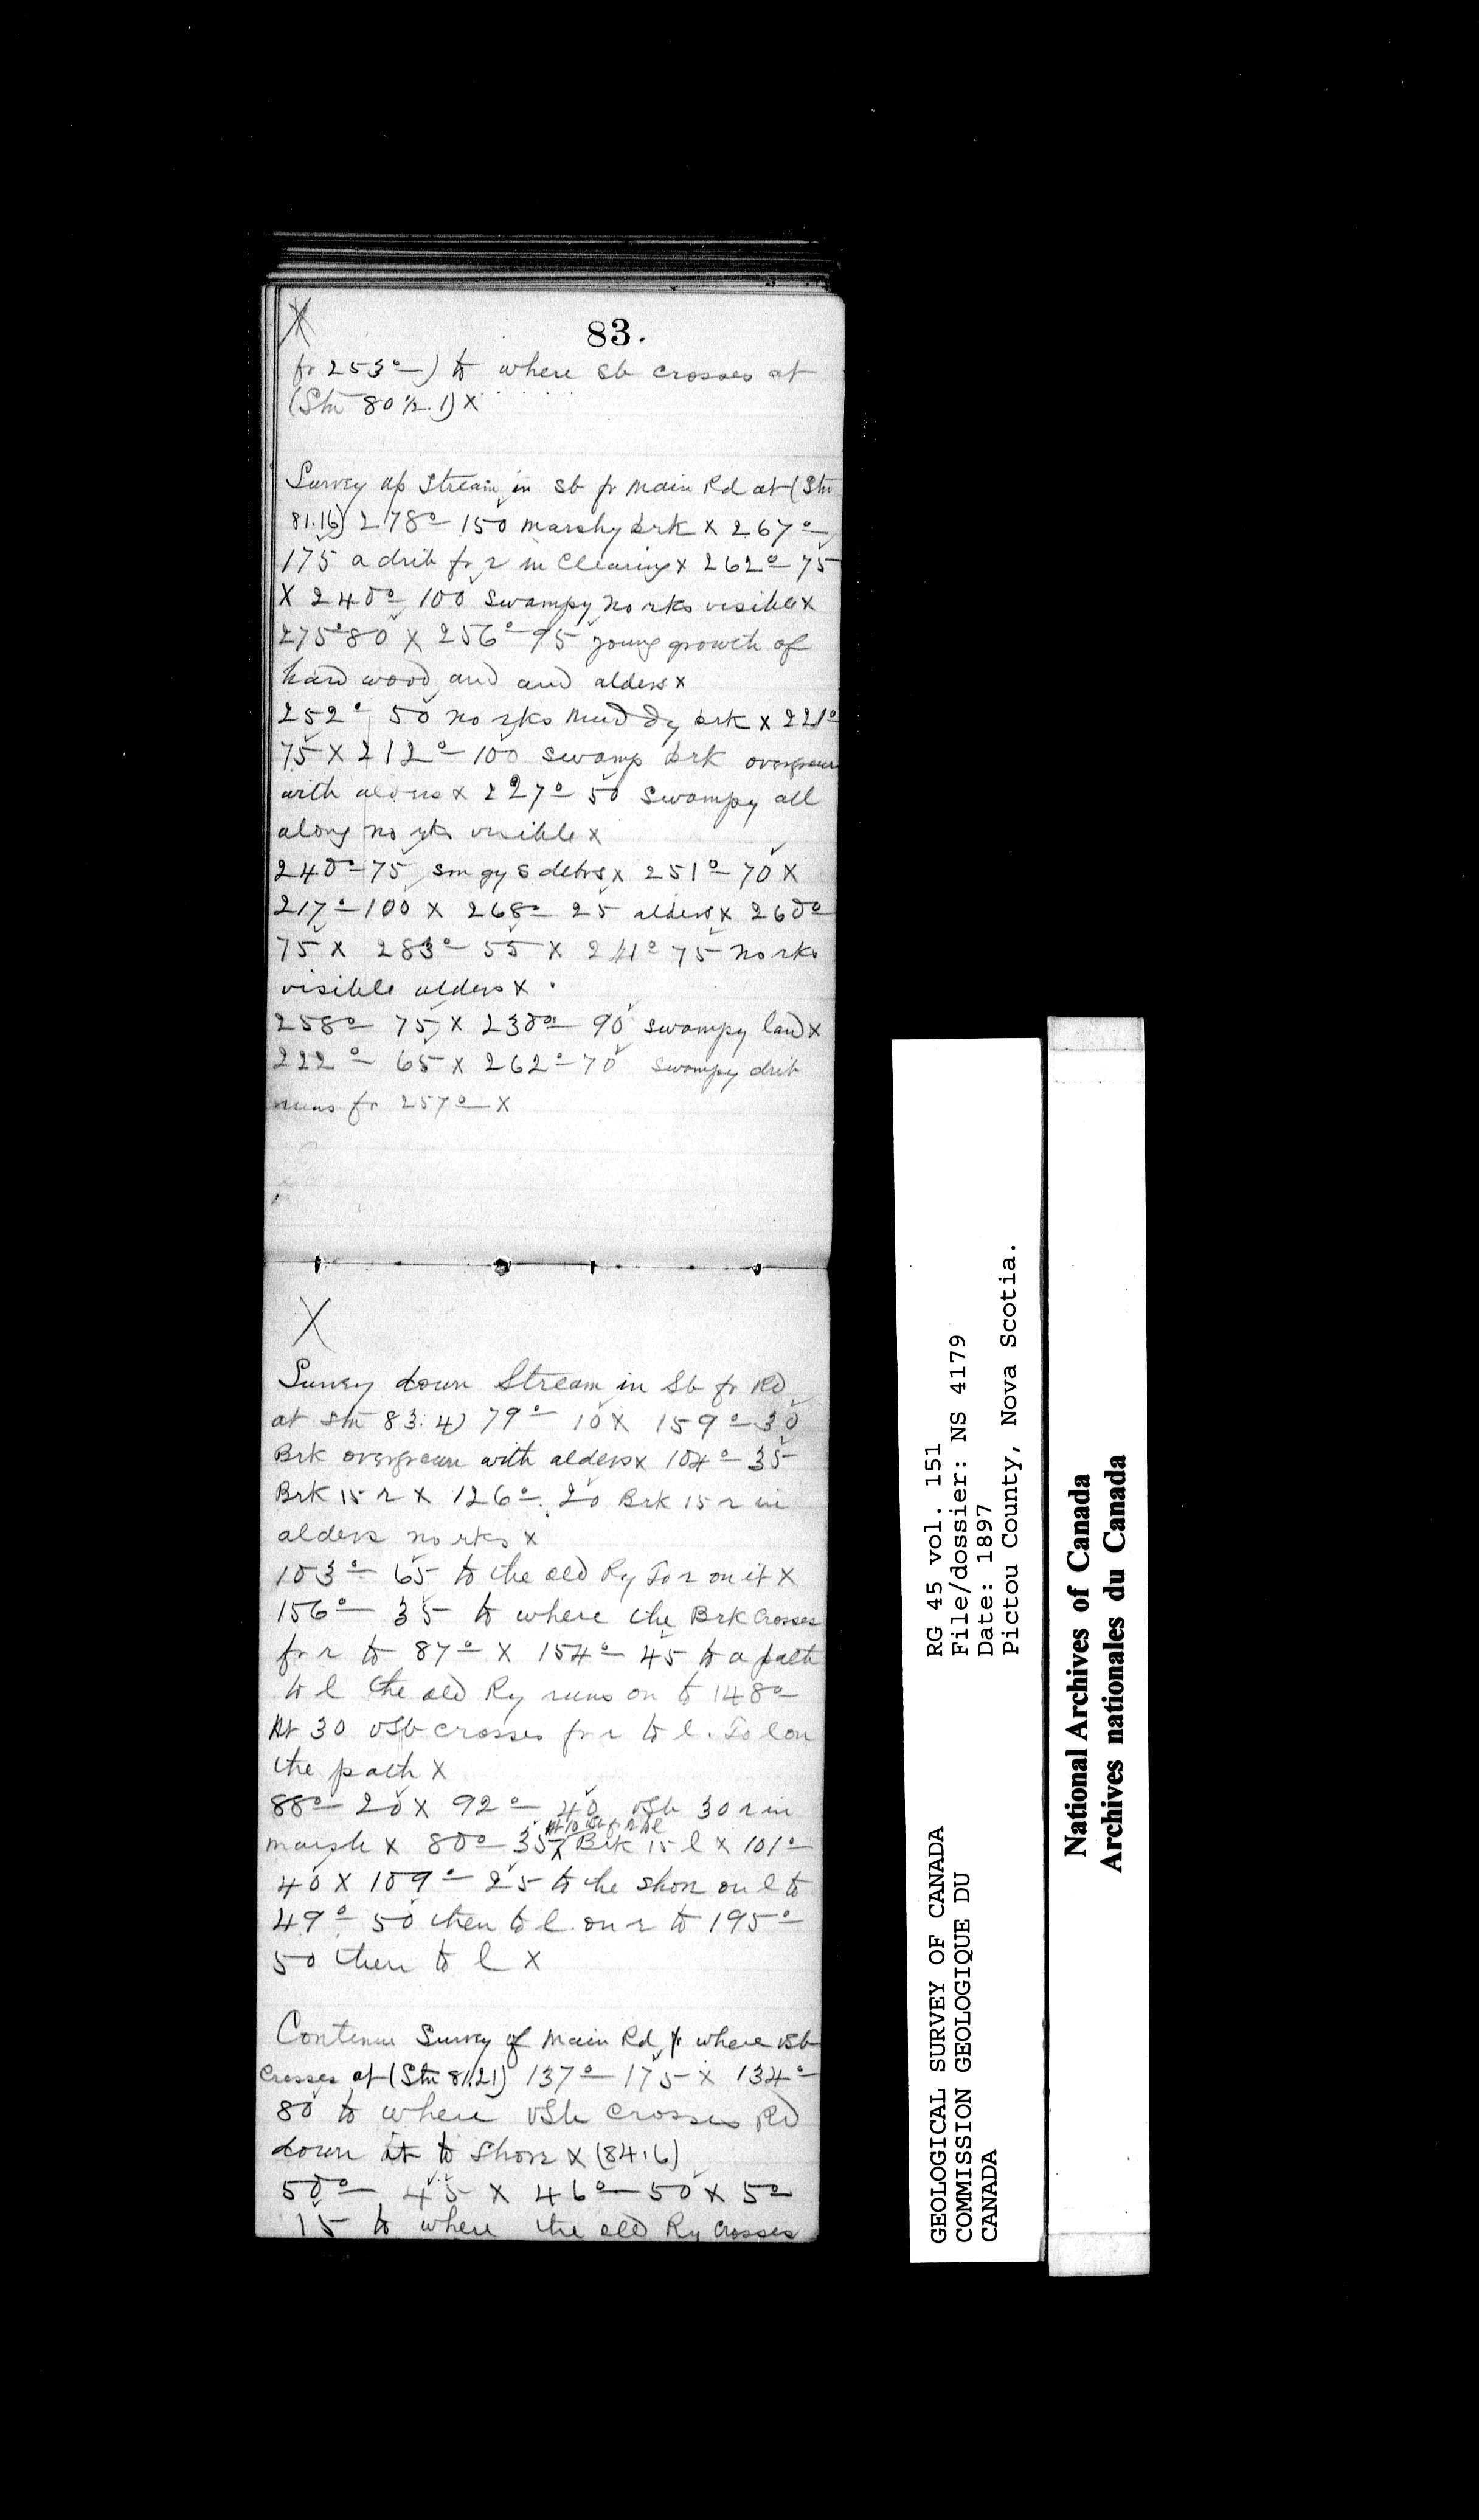 X
83.
fr 253°—) to where sb crosses at
(Stn 80½.1) X
Survey up Stream in sb fr Main Rd at (Stn
81.16) 278°— 150 marshy brk X 267°—
175 a drib fr r in Clearing X 262°— 75
X 240°— 100 Swampy no rks visible X
275° 80 X 256°— 95 young growth of
hard wood and and alders X
252° 50 no rks Muddy brk X 221°
75 X 212°— 100 swamp brk overgrown
with alders X 227°— 50 Swampy all
along no rks visible X
240°— 75 sm gy s debrs X 251°— 70 X
217°— 100 X 268°— 25 alders X 260°—
75 X 283°— 55 X 241° 75 no rks
visible alders X
258°— 75 X 230°— 90 swampy land X
222°— 65 X 262°— 70 Swampy drib
runs fr 257°— X
X
Survey down Stream in Sb fr Rd
at Stn 83.4) 79°— 10 X 159°— 30
Brk overgrown with alders X 104°— 35
Brk 15 r X 126°— 20 Brk 15 r in
alders no rks X
103°— 65 to the old Ry To r on it X
156°— 35 to where the Brk Crosses
fr r to 87°— X 154°— 45 to a path
to l the old Ry runs on to 148°—
At 30 vsb crosses fr r to l. To l on
the path X
88°— 20 X 92°— 40 vsb 30 r in
At 10 vsb fr r to l
marsh X 80°— 35 X Brk 15 l X 101°—
40 X 109°— 25 to the shore on l to
49°— 50 then to l on r to 195°—
50 then to l X
Continue Survey of Main Rd fr where vsb
Crosses at (Stn 81.21) 137°— 175 X 134°—
80 to where vsb crosses Rd
down it to Shore X (84.6)
50°— 45 X 46°— 50 X 5°—
15 to where the old Ry crosses
GEOLOGICAL SURVEY OF CANADA
COMMISSION GEOLOGIQUE DU
CANADA
RG 45 vol. 151
File/dossier: NS 4179
Date: 1897
Pictou County, Nova Scotia.
National Archives of Canada
Archives nationales du Canada